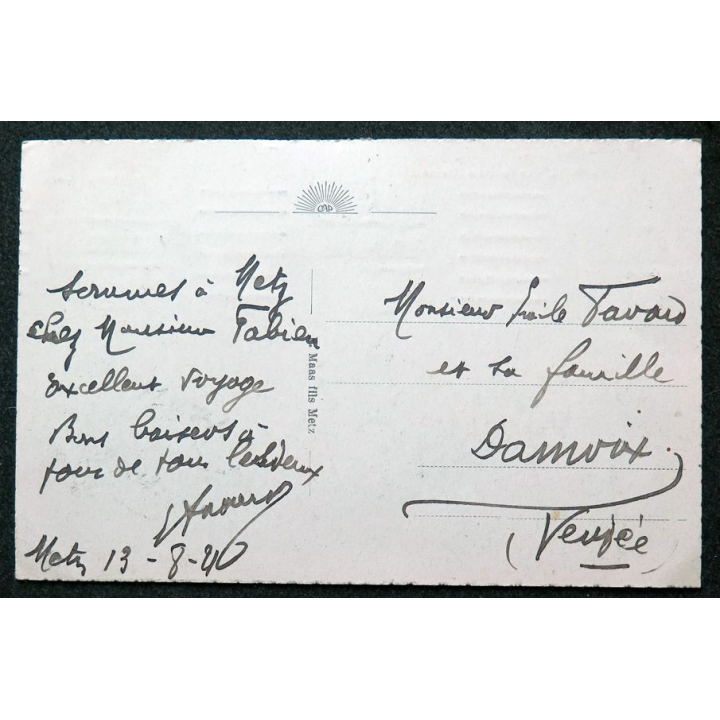 CAP
Sommes à Metz
chez Monsieur Fabien
Excellent voyage
Bons baisers à
tous de tous les deux
Metz 13-8-40
Maas fils Metz
Monsieur Emile Tavard
et sa famille
Damvix
(Vendée)